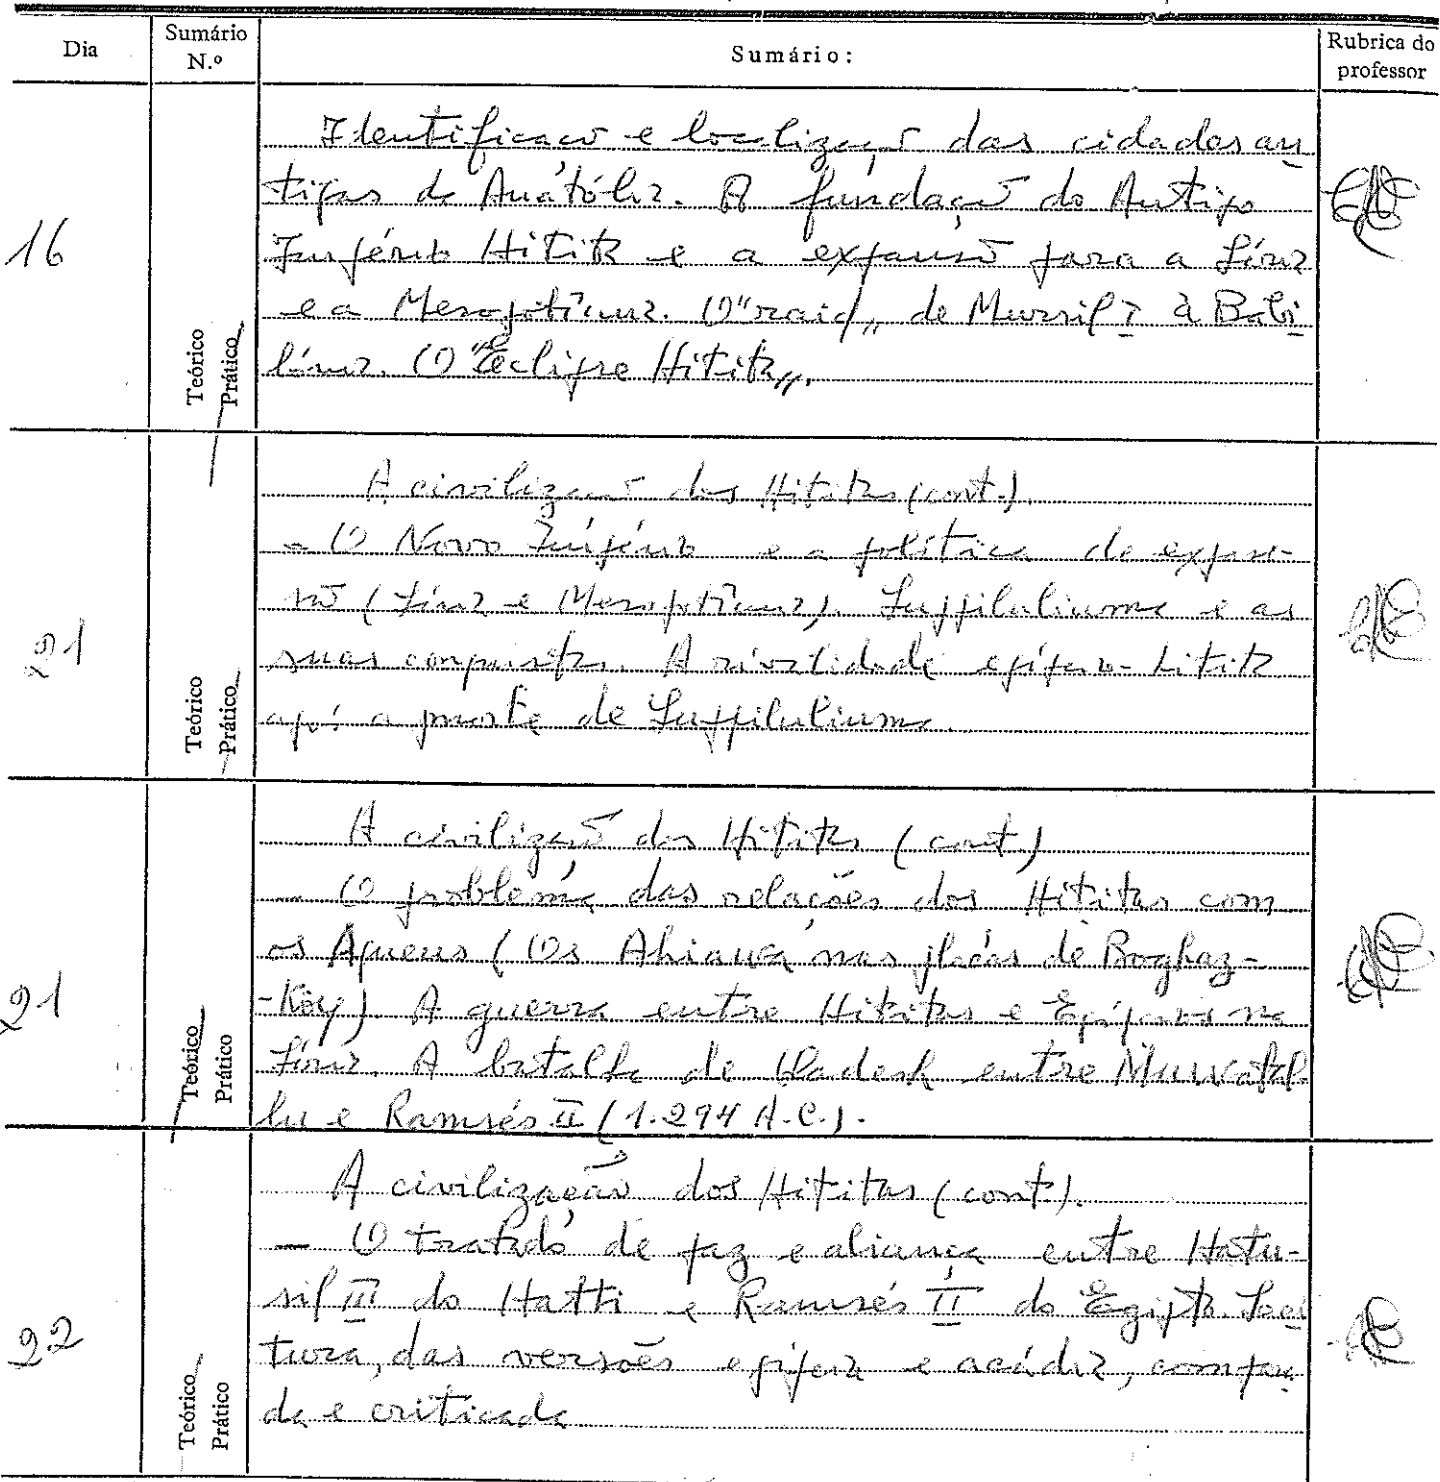 Dia
Sumário N.º
Sumário:
Rubrica do professor
16
Teórico
Prático
Identificação e localização das cidades an
tigas da Anatólia. A fundação do Antigo
Império Hitita e a expansão para a Síria
e a Mesopotâmia. O "raid" de Mursil I à Babi
lónia. O "Eclipse Hitita".
21
Teórico
Prático
A civilização dos Hititas (cont.).
- O Novo Império e a política de expan-
são (Síria e Mesopotâmia). Suppiluliuma e as
suas conquistas. A rivalidade egípcio-hitita
após a morte de Suppiluliuma.
21
Teórico
Prático
A civilização dos Hititas (cont.)
- O problema das relações dos Hititas com
os Aqueus (Os Ahiawa nas placas de Boghaz-
-Köy) A guerra entre Hititas e Egípcios na
Síria. A batalha de Kadesh entre Muwatal
lu e Ramsés II (1.294 A.C.).
22
Teórico
Prático
A civilização dos Hititas (cont.).
- O tratado de paz e aliança entre Hatu-
sil III do Hatti e Ramsés II do Egipto.
tura, das versões egípcia e acádia, compara
da e criticada